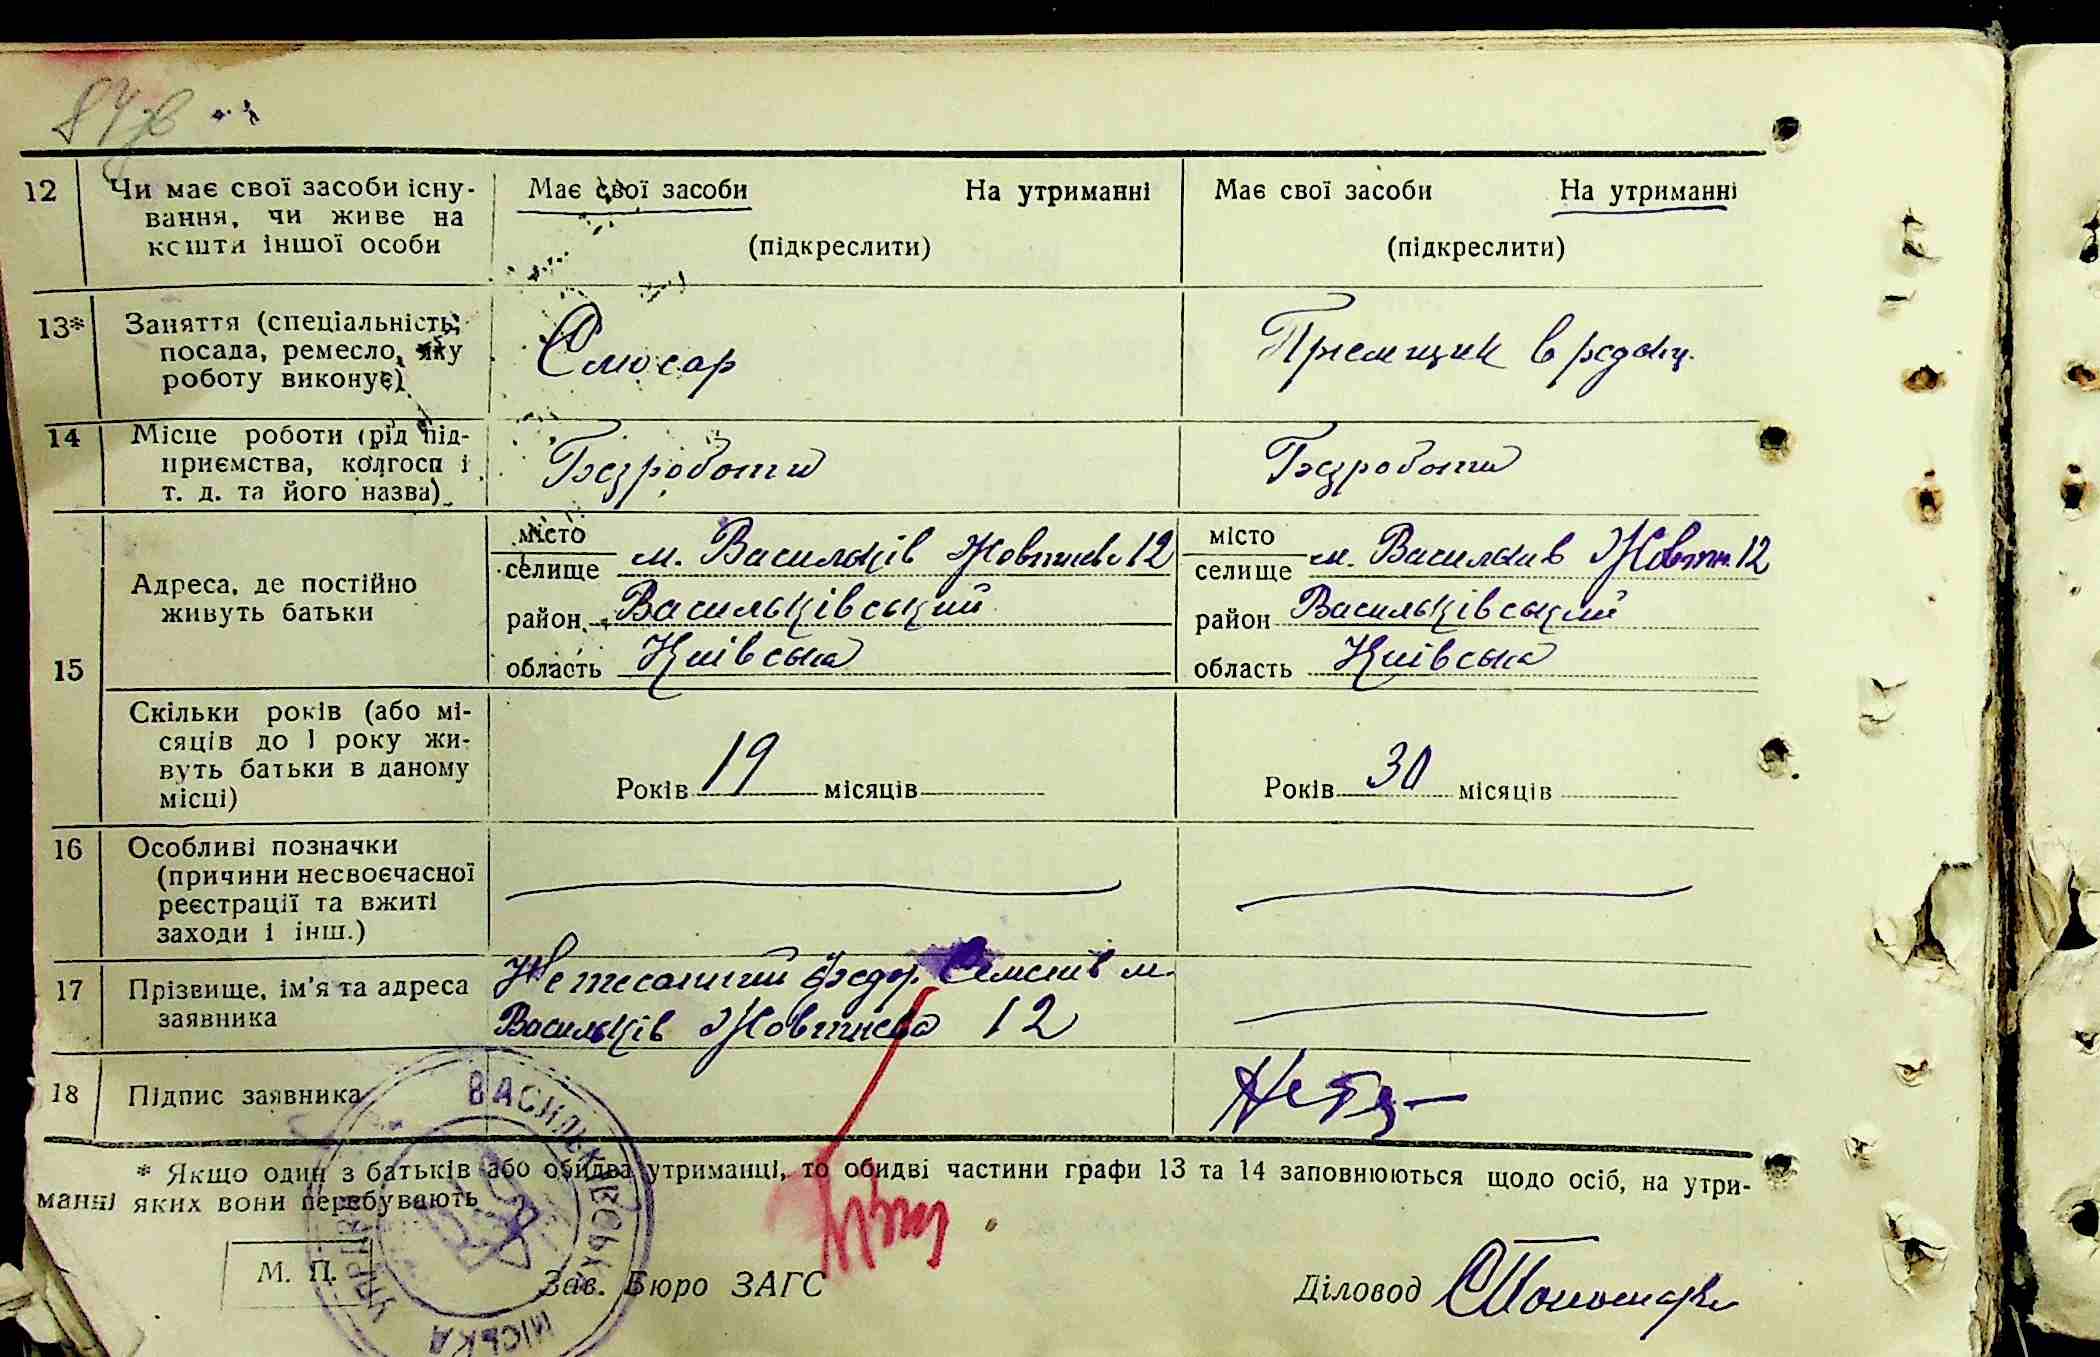 84зв
12 Чи має свої засоби існу- Має свої засоби На утриманні Має свої засоби На утриманні
вання, чи живе на
кошти іншої особи (підкреслити) (підкреслити)
13* Заняття (спеціальність,
посада, ремесло, яку Слюсар Приемщик в редакц.
роботу виконує)
14 Місце роботи (рід під-
приємства, колгосп і Безроботни Безроботни
т. д. та його назва)
15 Адреса, де постійно
живуть батьки
місто
селище м. Васильків Жовтнева 12
район Васильківський
область Київська
місто
селище м. Василькив Жовтн. 12
район Васильківський
область Київська
Скільки років (або мі-
сяців до 1 року жи-
вуть батьки в даному Років 19 місяців Років 30 місяців
місці)
16 Особливі позначки
(причини несвоєчасної
реєстрації та вжиті
заходи і інш.)
17 Прізвище, ім'я та адреса Нетесаний Федор м.
заявника Васильків Жовтнева 12
18 Підпис заявника
* Якщо один з батьків або обидва утриманці, то обидві частини графи 13 та 14 заповнюються щодо осіб, на утри-
манні яких вони перебувають
М. П. Зав. Бюро ЗАГС Діловод
ВАСИЛЬКІВСЬКА МІСЬКА УПРАВА